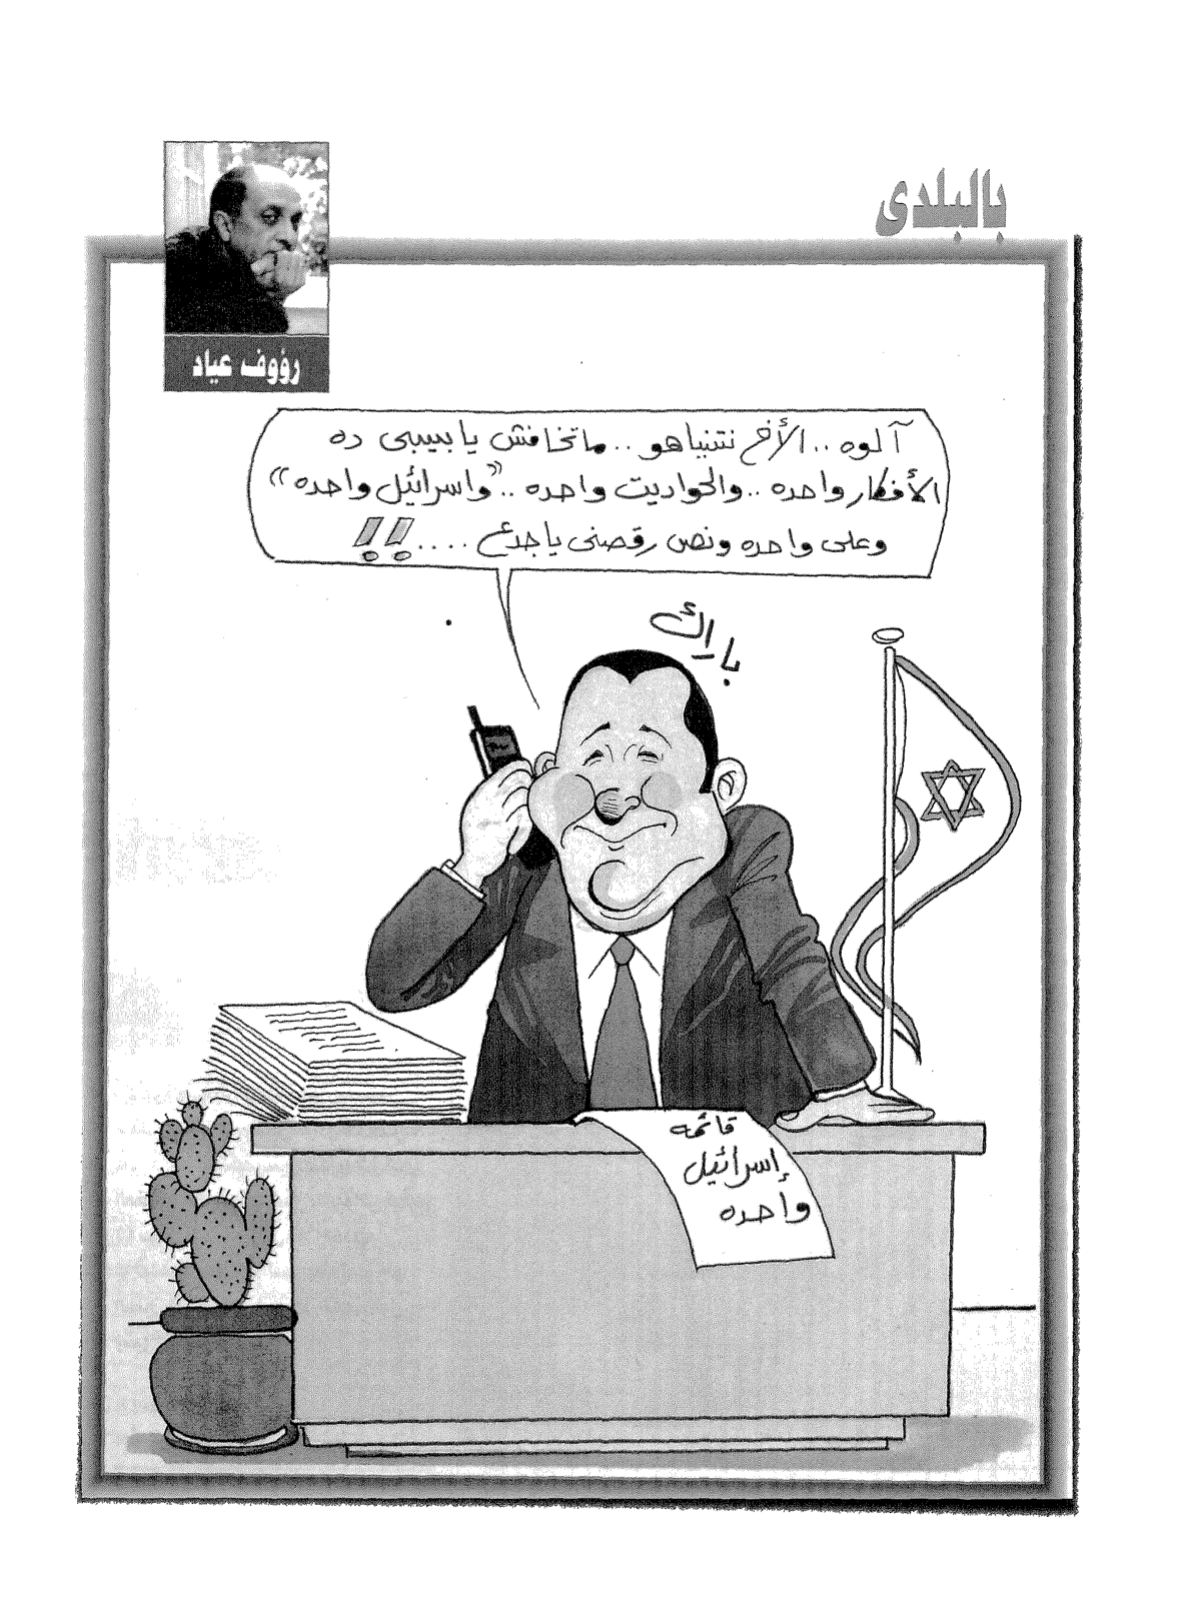 بالبلدى
رؤوف عياد
آلوه .. الأخ نتنياهو .. ماتخافش يا بيبى ده
الأفكار واحده .. والحواديت واحده .. "واسرائيل واحده"
وعلى واحده ونص رقصنى يا جدع ....!!
باراك
قائمه
إسرائيل
واحده